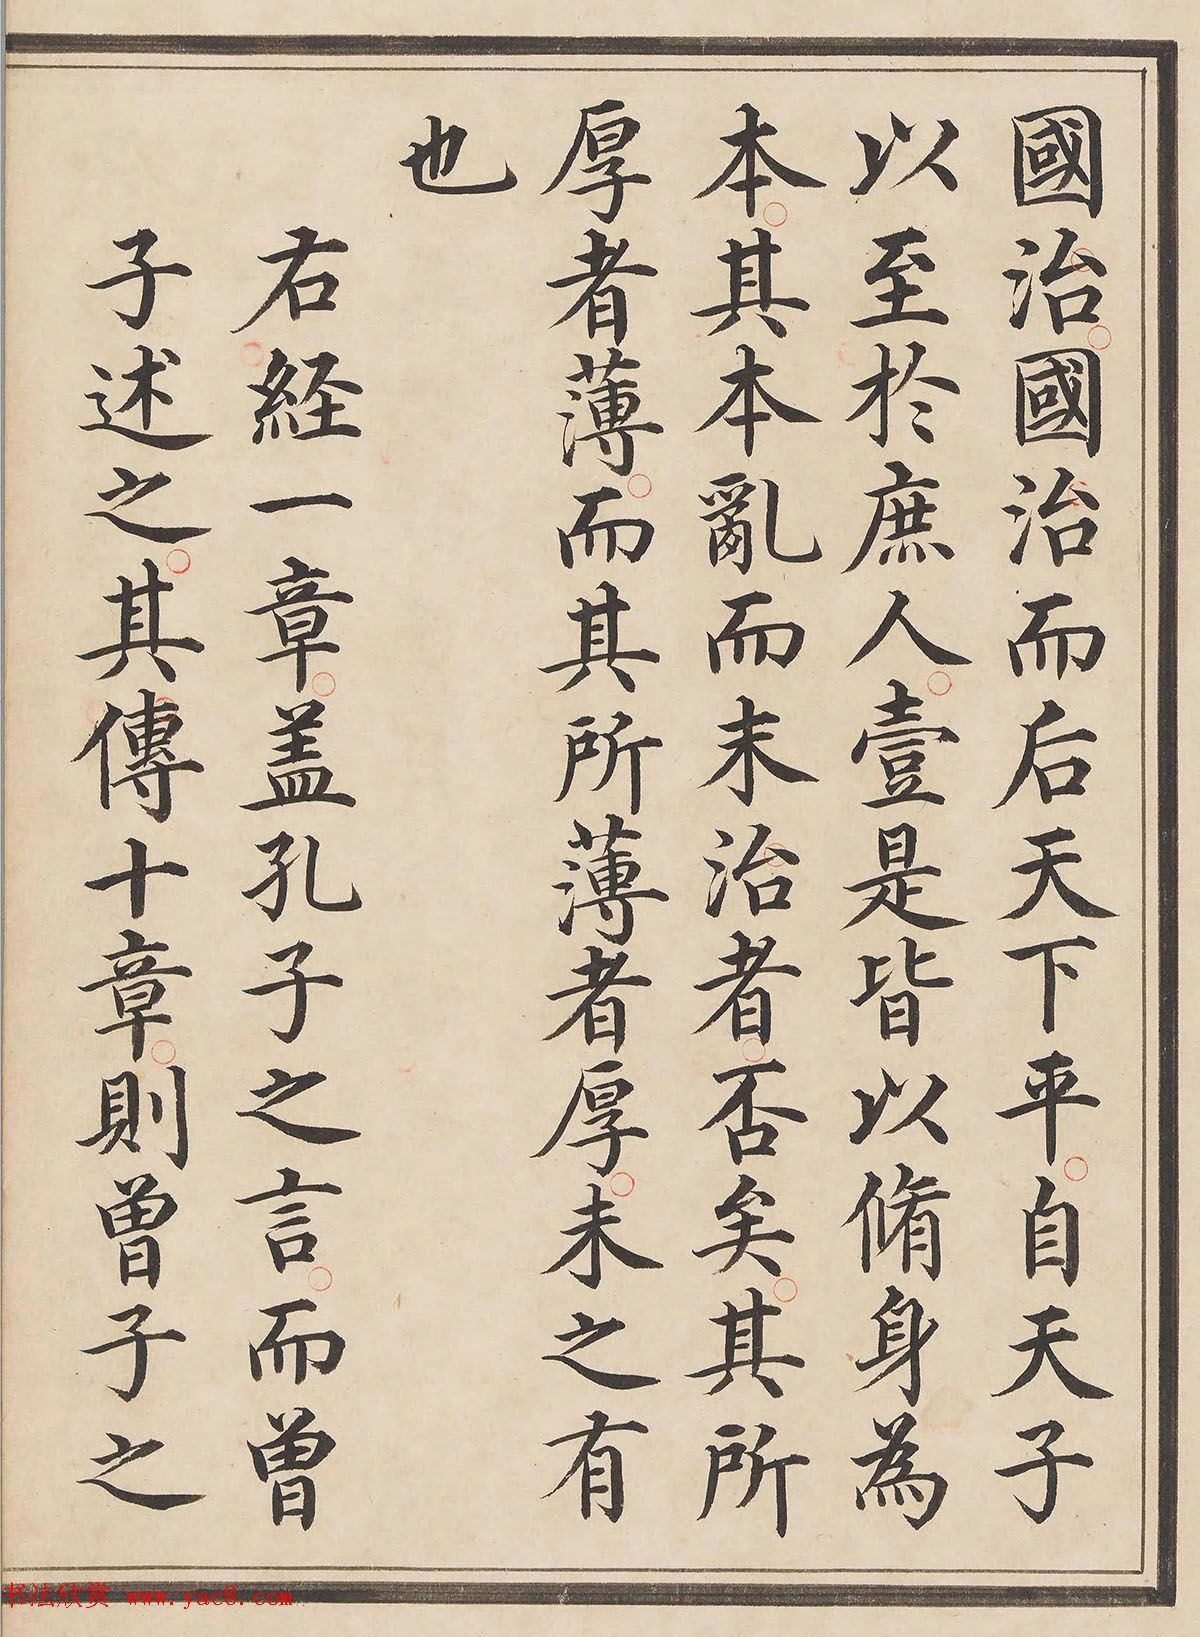 國治國治而后天下平自天子
以至於庶人壹是皆以脩身為
本其本亂而末治者否矣其所
厚者薄而其所薄者厚未之有
也
右経一章盖孔子之言而曽
子述之其傳十章則曽子之
书法欣赏 www.yac8.com